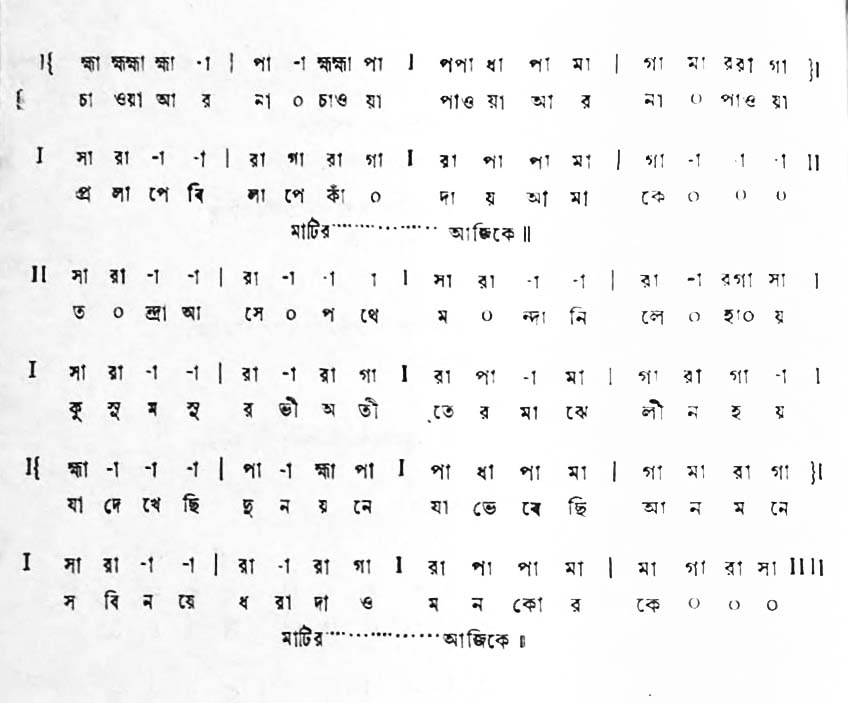 I{ হ্মা হ্মহ্মা হ্মা -া | পা -া হ্মহ্মা পা I পপা ধা পা মা | গা মা ররা গা }I
{ চা ওয়া আ র না ০ চাও য়া পাও য়া আ র না ০ পাও য়া
I সা রা -া -া | রা গা রা গা I রা পা পা মা | গা -া -া -া II
প্র লা পে বি লা পে কাঁ ০ দা য় আ মা কে ০ ০ ০
মাটির ·············· আজিকে ॥
II সা রা -া -া | রা -া -া া I সা রা -া -া | রা -া রগা সা I
ত ০ ন্দ্রা আ সে ০ প থে ম ০ ন্দা নি লে ০ হা০ য়
I সা রা -া -া | রা -া রা গা I রা পা -া মা | গা রা গা -া I
কু সু ম সু র ভী অ তী তে র মা ঝে লী ন হ য়
I{ হ্মা -া -া -া | পা -া হ্মা পা I পা ধা পা মা | গা মা রা গা }I
যা দে খে ছি দু ন য় নে যা ভে বে ছি আ ন ম নে
I সা রা -া -া | রা -া রা গা I রা পা পা মা | মা গা রা সা IIII
স বি ন য়ে ধ রা দা ও ম ন কো র কে ০ ০ ০
মাটির ·············· আজিকে ॥